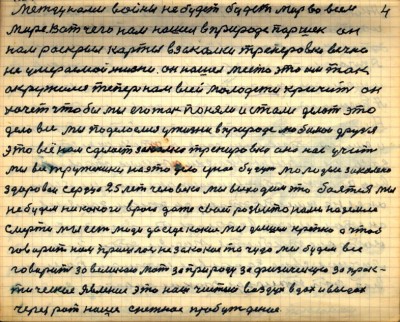 4
Между нами войны не будет будет мир во всем
мире. Вот чего нам нашел в природе Паршек он
нам раскрыл карты в закалки тренировки вечно
не умираемой жизни. он нашел место это им так
окружился теперь нам всей молодежи кричит он
хочет чтобы мы его так поняли и стали делать это
дело все мы поделаемся учимся в природе любимого друга
это всё нам сделает закалка тренировка она нас учит
мы ее труженики на это дело она будет молодые закалено
здоровое сердце 25 лет человека мы выходим это боятся мы
не будем никакого врага даже своей развито нами на земле
смерти мы есть люди до сердца каши мы дышим крепко а чтоб
говорит нам пришлое не закон а то чудо мы будем все
говорить за великого мать за природу за физическую за прак-
тическое явление это наш чистый воздух вдох и выдох
через рот наше снежное пробуждение